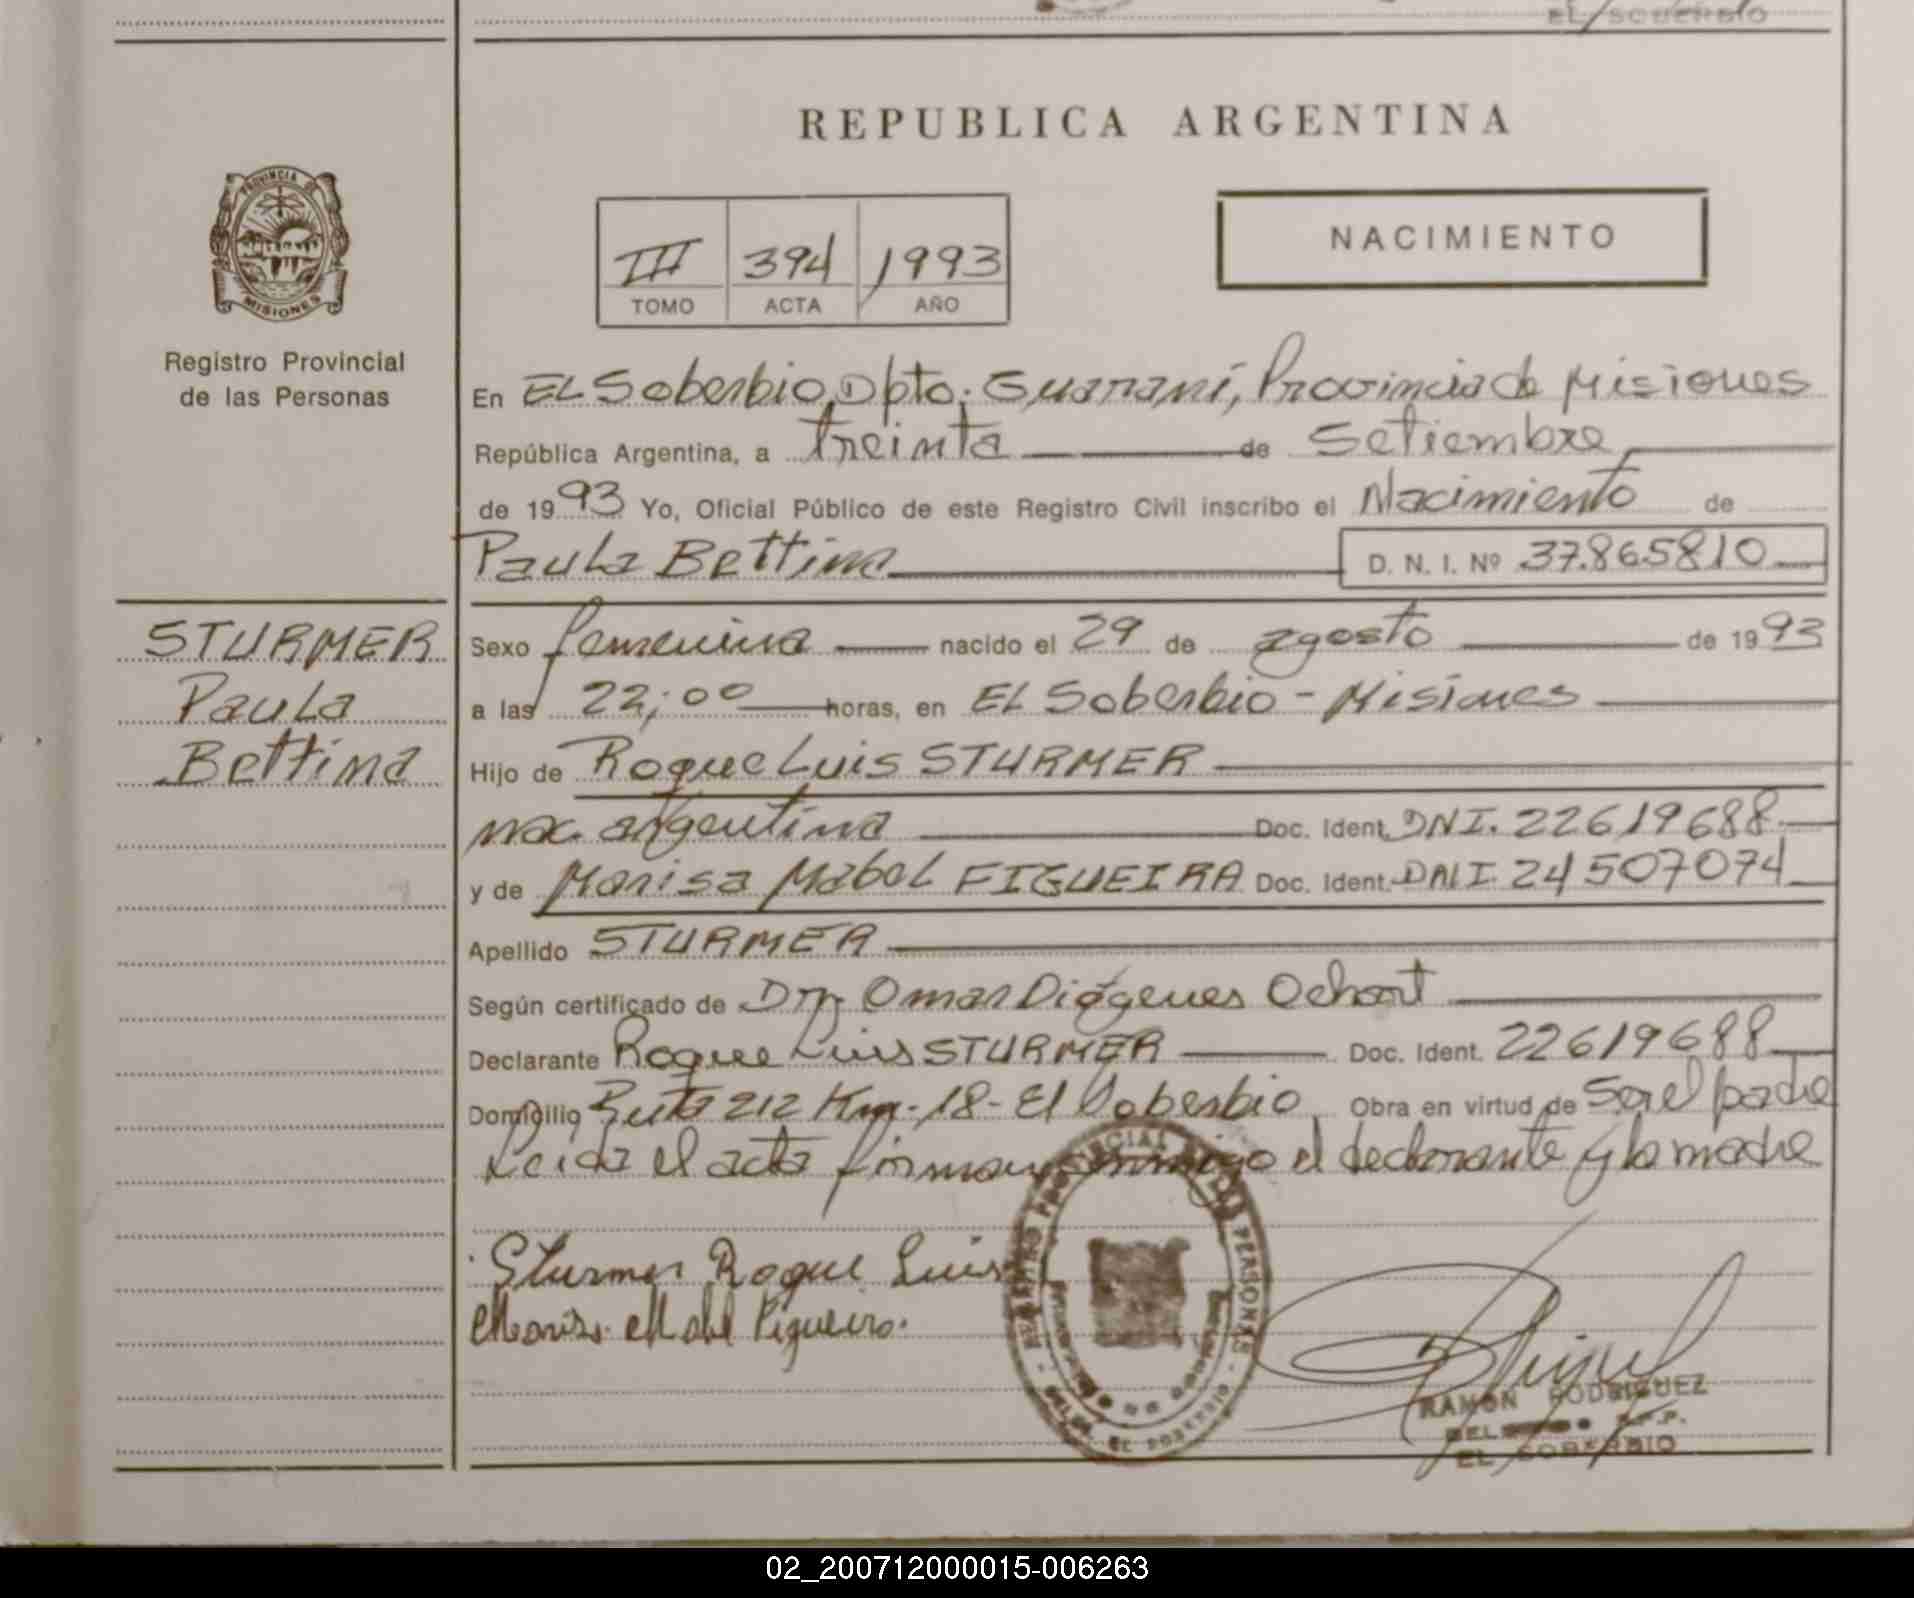 EL SOBERBIO
REPUBLICA ARGENTINA
PROVINCIA DE
MISIONES
Registro Provincial
de las Personas
III 394 1993
TOMO ACTA AÑO
NACIMIENTO
En EL Soberbio, Dpto. Guaraní, Provincia de Misiones
República Argentina, a treinta de Setiembre
de 1993 Yo, Oficial Público de este Registro Civil inscribo el Nacimiento de
Paula Bettina D. N. I. Nº 37.865810
STURMER
Paula
Bettina
Sexo femenina nacido el 29 de agosto de 1993
a las 22;00 horas, en EL Soberbio - Misiones
Hijo de Roque Luis STURMER
nac. argentina Doc. Ident. DNI. 22619688
y de Marisa Mabel FIGUEIRA Doc. Ident. DNI 24507074
Apellido STURMER
Según certificado de Omar Diógenes
Declarante Roque Luis STURMER Doc. Ident. 22619688
Domicilio Ruta 212 Km. 18 - El Soberbio Obra en virtud de Ser el padre
Leida el acta firman conmigo el declarante y la madre
Sturmer Roque Luis
Marisa Mabel Figueira.
REGISTRO PROVINCIAL DE LAS PERSONAS
EL SOBERBIO
RAMON RODRIGUEZ
EL SOBERBIO
02_200712000015-006263